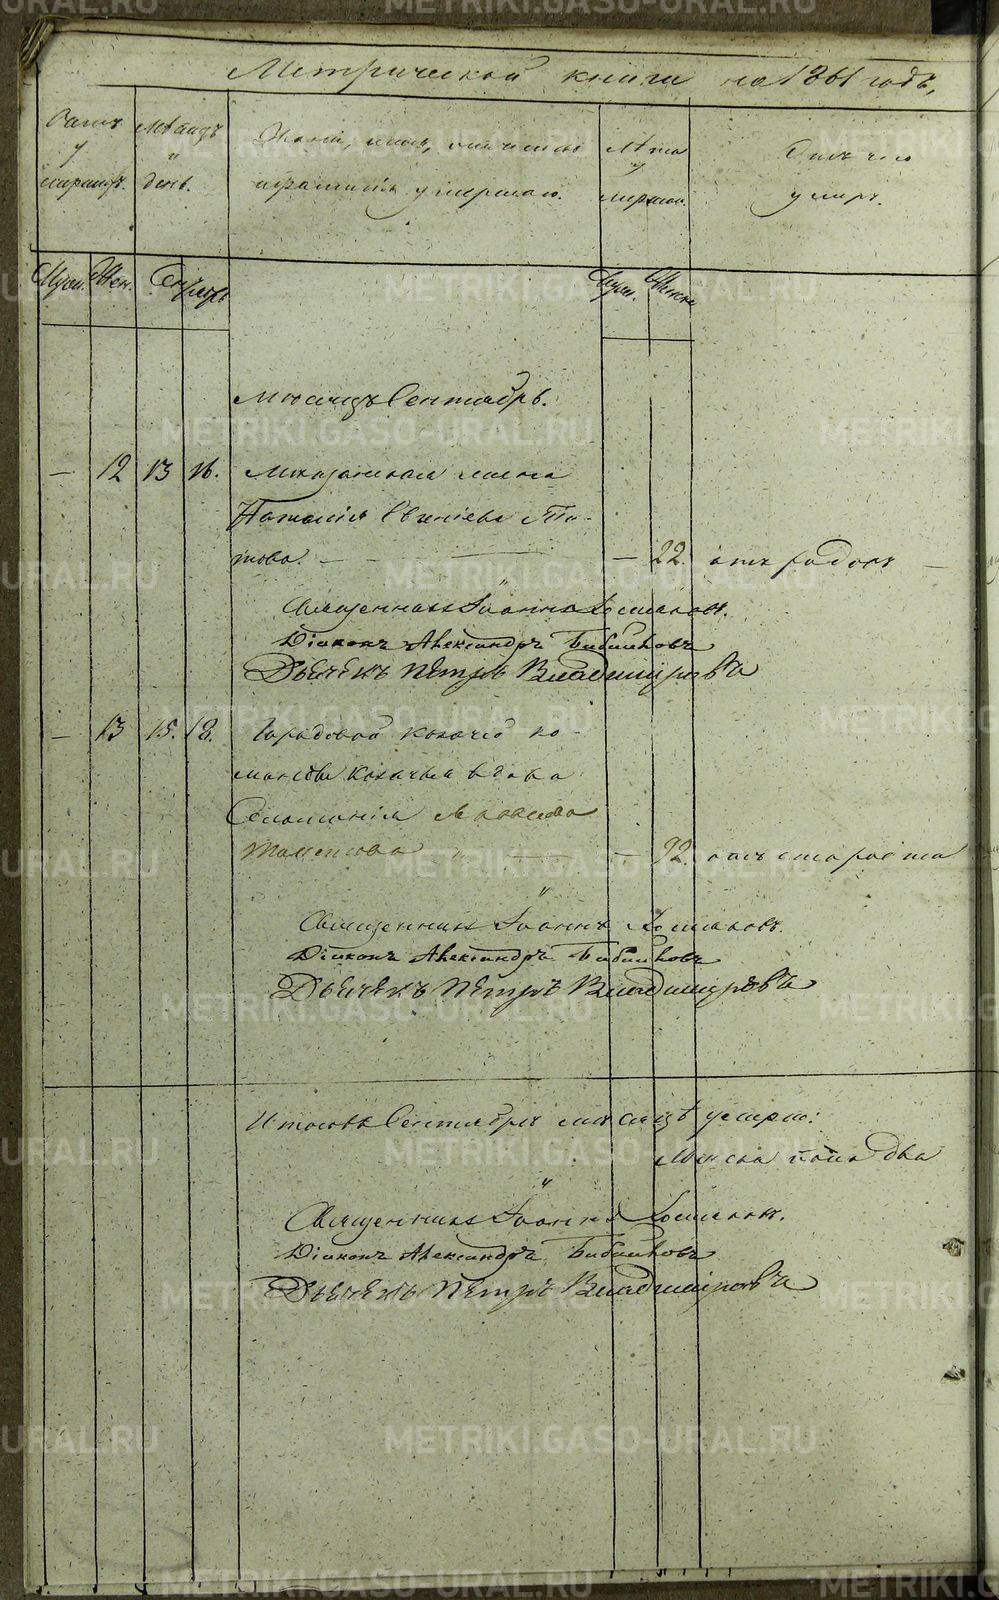 Метрической книги на 1861 годъ,
Счетъ умершихъ.
Мѣсяцъ и день.
Званіе, имя, отчество и фамилія умершаго.
Лѣта умершаго.
Отъ чего умеръ.
Муж. Жен. Сентябрь
Муж. Женск.
Мѣсяцъ Сентябрь.
— 12 13 16.
жена
Наталія Евгніева Ти-
това. — — 22. отъ родовъ —
Священникъ Іоаннъ
Діаконъ Александръ Бибиковъ
Дьячекъ Петръ Владиміровъ
— 13 15. 18. Городовой казачей ко-
манды казачья вдова
Соломонія Яковлева
— 92. отъ старости
Священникъ Іоаннъ
Діаконъ Александръ Бибиковъ
Дьячекъ Петръ Владиміровъ
Итого въ Сентябрѣ мѣсяцѣ умерло:
Женска пола два
Священникъ Іоаннъ
Діаконъ Александръ Бибиковъ
Дьячекъ Петръ Владиміровъ
METRIKI.GASO-URAL.RU